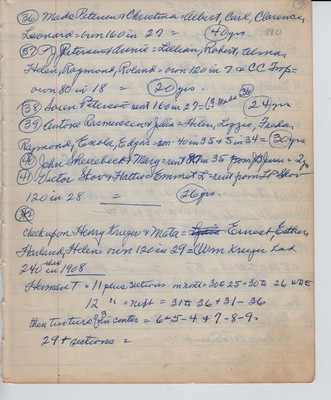 (36) Mads Petersen & Christina = Albert, Carl, Clarence,
Leonard = own 160 in 27 = 40 yrs.
(37) Petersen & Annie = Lillian, Robert, Alma,
Helen, Raymond, Roland = own 120 in 7 & CC Twp =
own 80 in 18 = 20 yrs.
(38) Soren Petersen = rent 160 in 27 = 24 yrs
(39) Antone Rasmussen & Julia = Helen, Lizzie, Freda,
Raymond, Edgar = own 40 in 35 & 5 in 34 = 30 yrs
(40) John & Mary = rent in 35 from = 2 yrs
(41) Victor Skov & Hattie = Emmet L = rent from Skov
120 in 28 = 26 yrs.
(42)
Check upon Henry Krueger & Meta = Ernest, Esther,
Harland, Helen = own 120 in 29 = Wm Krueger had
240 in 1908
Herman T = 11 plus sections on north = 30 & 25 + 30 & 26
12 " = next = 31 & 36 & 31 - 36
then two tiers in center = 6 & 5 - 4 & 7 - 8 - 9 =
29 + sections =